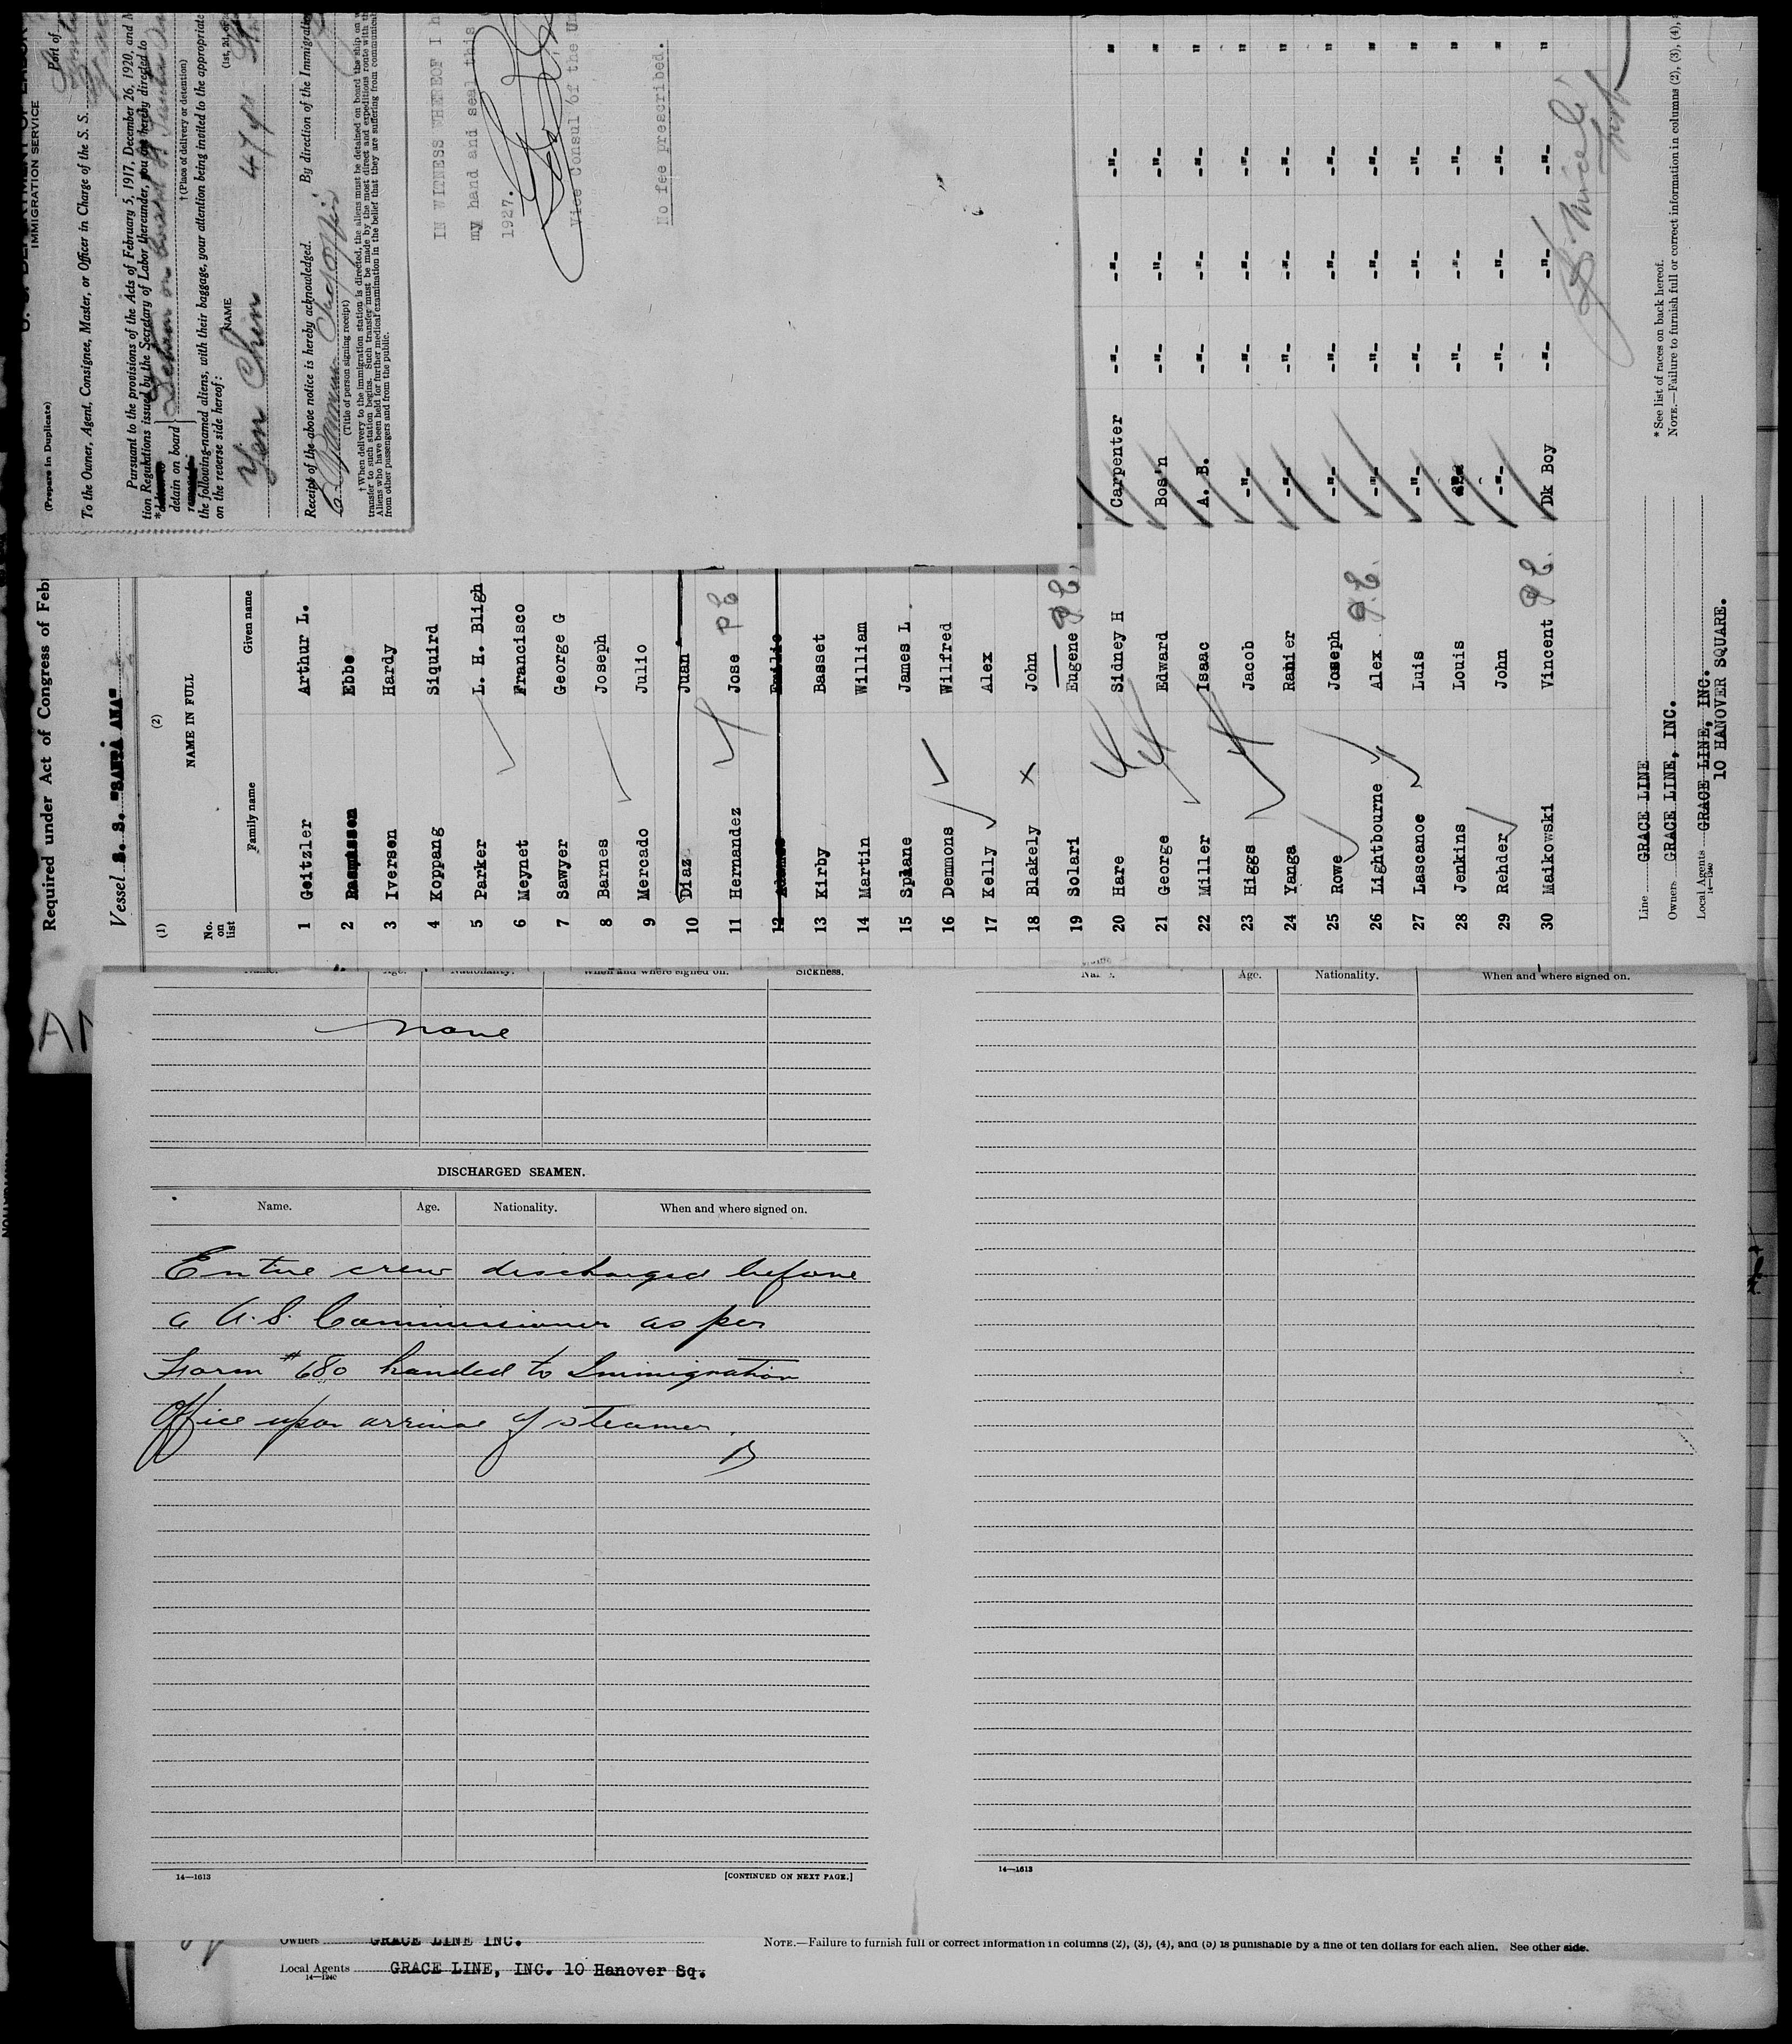 U. S. DEPARTMENT OF LABOR
IMMIGRATION SERVICE
(Prepare in Duplicate)
Port of
To the Owner, Agent, Consignee, Master, or Officer in Charge of the S. S.
Pursuant to the provisions of the Acts of February 5, 1917, December 26, 1920, and M
tion Regulations issued by the Secretary of Labor thereunder, you are hereby directed to
detain on board
† (Place of delivery or detention)
the following-named aliens, with their baggage, your attention being invited to the appropriate
on the reverse side hereof:
NAME
Yen Chin
Receipt of the above notice is hereby acknowledged.
By direction of the Immigration
(Title of person signing receipt)
† When delivery to the immigration station is directed, the aliens must be detained on board the ship on w
transfer to such station begins. Such transfer must be made by the most direct and expeditious route with th
Aliens who have been held for further medical examination in the belief that they are suffering from communicab
from other passengers and from the public.
IN WITNESS WHEREOF I h
my hand and seal this
1927.
Vice Consul of the Un
No fee prescribed.
Required under Act of Congress of Feb
Vessel S. S. "SANTA ANA"
(1) (2)
No. on list
NAME IN FULL
Family name Given name
1 Geitzler Arthur L.
2 Rasmussen Ebbe
3 Iversen Hardy
4 Koppang Siquird
5 Parker L. H. Bligh
6 Meynet Francisco
7 Sawyer George G
8 Barnes Joseph
9 Mercado Julio
10 Diaz Juan
11 Hernandez Jose PE
12 Adames Emilio
13 Kirby Basset
14 Martin William
15 Splane James L.
16 Demmons Wilfred
17 Kelly Alex
18 Blakely John
19 Solari Eugene P.E.
20 Hare Sidney H Carpenter -"- -"- -"- "
21 George Edward Bos'n -"- -"- -"- "
22 Miller Isaac A. B. -"- -"- -"- "
23 Higgs Jacob -"- -"- -"- -"- "
24 Yanga Ranier -"- -"- -"- -"- "
25 Rowe Joseph -"- -"- -"- -"- "
26 Lightbourne Alex P.E. -"- -"- -"- -"- "
27 Lascanoe Luis -"- -"- -"- -"- "
28 Jenkins Louis -"- -"- -"- "
29 Rehder John -"- -"- -"- -"- "
30 Maikowski Vincent P.E. Dk Boy -"- -"- -"- "
Line GRACE LINE
Owners GRACE LINE, INC.
Local Agents GRACE LINE, INC.
14—1240
10 HANOVER SQUARE.
* See list of races on back hereof.
NOTE.—Failure to furnish full or correct information in columns (2), (3), (4),
Name. Age. Nationality. When and where signed on. Sickness.
none
DISCHARGED SEAMEN.
Name. Age. Nationality. When and where signed on.
Entire crew discharged before
a U.S. Commissioner as per
Form #680 handed to Immigration
Office upon arrival of steamer.
14—1613
[CONTINUED ON NEXT PAGE.]
Name. Age. Nationality. When and where signed on.
14—1613
Owners GRACE LINE INC.
Local Agents GRACE LINE, INC. 10 Hanover Sq.
14—1240
NOTE.—Failure to furnish full or correct information in columns (2), (3), (4), and (5) is punishable by a fine of ten dollars for each alien. See other side.